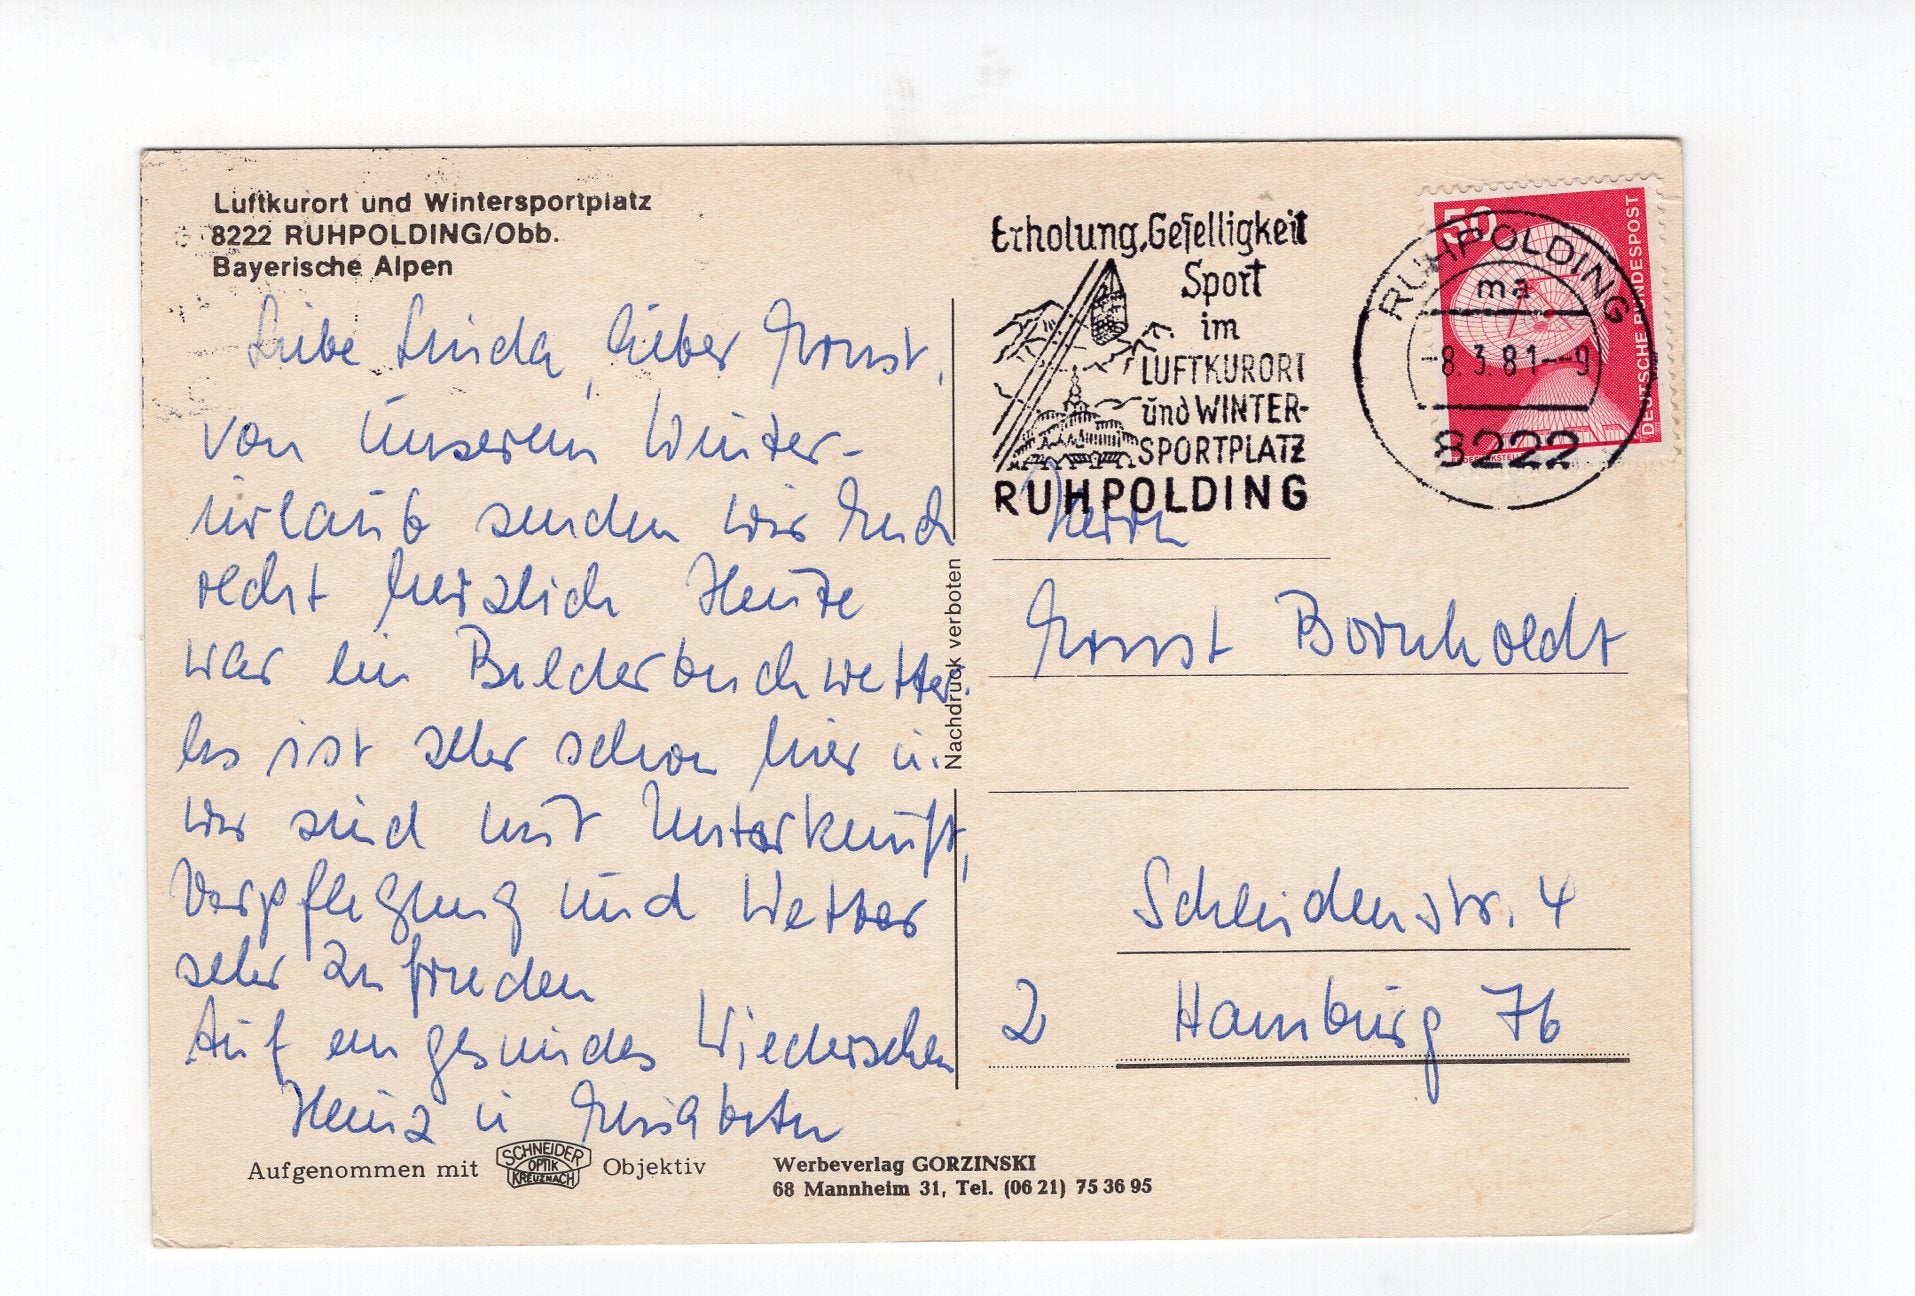 Luftkurort und Wintersportplatz
8222 RUHPOLDING/Obb.
Bayerische Alpen
Liebe Linda, lieber Ernst,
von unserem Winter-
urlaub senden wir Euch
recht herzlich Heute
war ein Bilderbuchwetter.
Es ist sehr schön hier u.
wir sind mit Unterkunft,
Verpflegung und Wetter
sehr zufrieden
Auf ein gesundes Wiedersehen
Heinz u Elisabeth
Aufgenommen mit SCHNEIDER OPTIK KREUZNACH Objektiv
Werbeverlag GORZINSKI
68 Mannheim 31, Tel. (06 21) 75 36 95
Nachdruck verboten
Erholung, Geselligkeit
Sport
im
LUFTKURORT
und WINTER-
SPORTPLATZ
RUHPOLDING
50
DEUTSCHE BUNDESPOST
RUHPOLDING
ma
-8.3.81--9
8222
Herrn
Ernst Bornholdt
Scheidenstr. 4
2 Hamburg 76